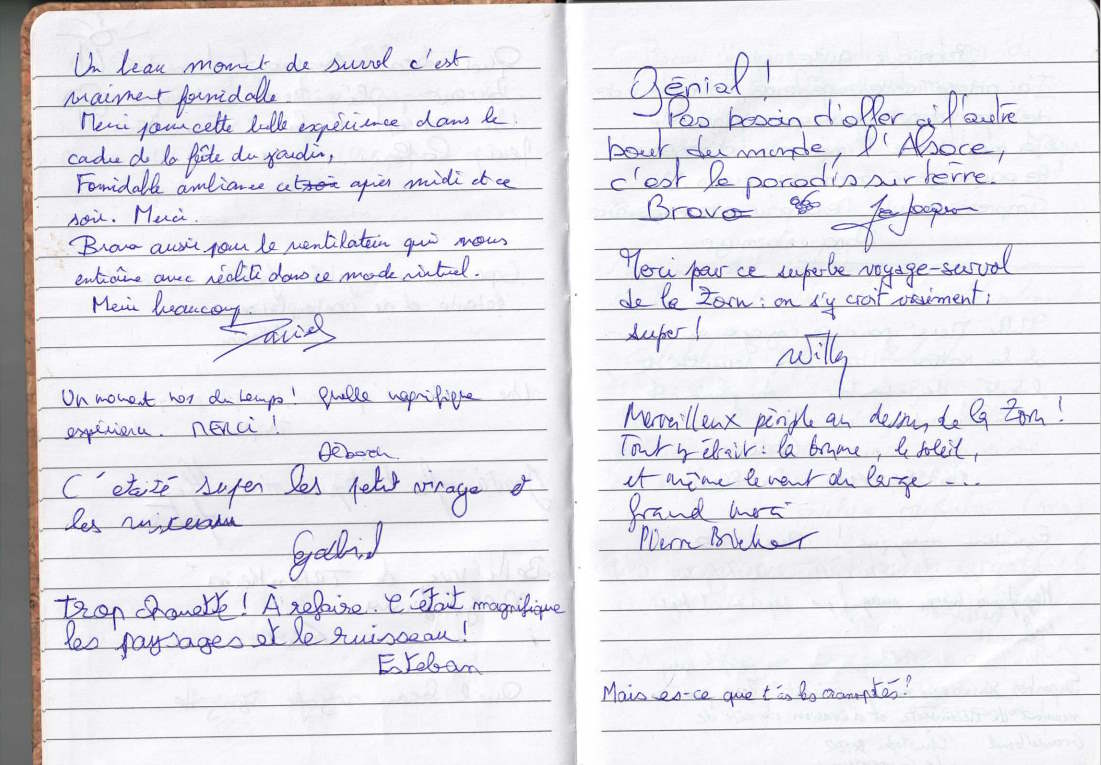 Un beau moment de survol c'est
vraiment formidable
Merci pour cette belle expérience dans le
cadre de la fête du jardin,
Formidable ambiance cet après midi et ce
soir. Merci.
Bravo aussi pour le ventilateur qui nous
entraîne avec réalité dans ce monde virtuel.
Merci beaucoup.
Un moment hors du temps! Quelle magnifique
expérience. MERCI!
Déborah
C'etaité super les petit virage et
les ruisseau
Gabriel
trop chouette! À refaire. C'était magnifique
les paysages et le ruisseau!
Esteban
Génial!
Pas besoin d'aller à l'autre
bout du monde, l'Alsace,
c'est le paradis sur terre.
Bravo
Merci pour ce superbe voyage-survol
de la Zorn: on s'y croit vraiment;
super!
Willy
Merveilleux périple au dessus de la Zorn!
Tout y était: la brume, le soleil,
et même le vent du large ...
Grand merci
Pierre
Mais es-ce que t'as les cramptés?